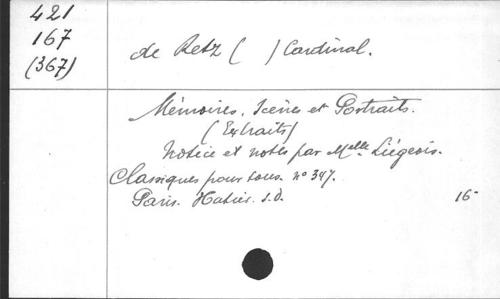 421
167
(367)
de Retz ( ) Cardinal.
Mémoires. Scènes et Portraits.
(Extraits)
Notice et notes par Melle Liégeois.
Classiques pour tous. nº 347.
Paris. Hatier. s.d. 16-